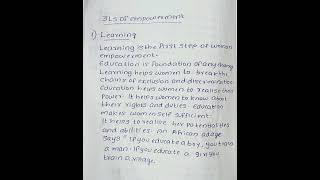 3Ls of empowerment
1) Learning
Learning is the first step of women
empowerment.
Education is foundation of any change
Learning helps women to break the
chains of exclusion and discrimination
Education helps women to realise their
Power. It helps women to know about
their rights and duties. Education
makes women self sufficient.
It helps to realise her potentialities
and abilities. An African adage
says "If you educate a boy, you train
a man. If you educate a girl you
train a village.